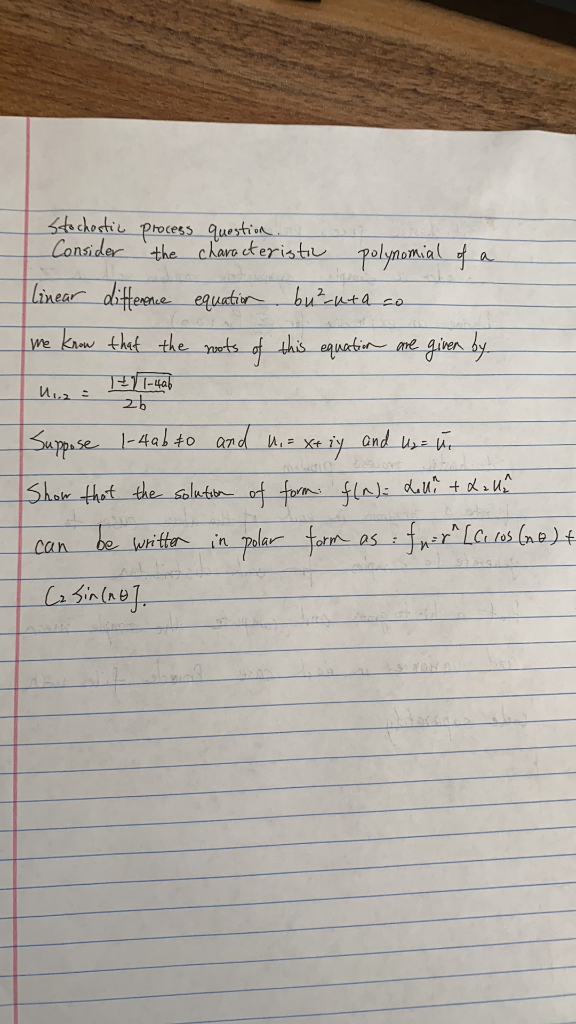 Stochastic process question.
Consider the characteristic polynomial of a
linear difference equation. bu²-u+a=0
we know that the roots of this equation are given by.
u₁,₂ = (1±√(1-4ab))/2b
Suppose 1-4ab≠0 and u₁= x+iy and u₂= ū₁
Show that the solution of form: f(n)= α₁u₁ⁿ + α₂u₂ⁿ
can be written in polar form as: fₙ=rⁿ[C₁cos(nθ)+
C₂ Sin(nθ].